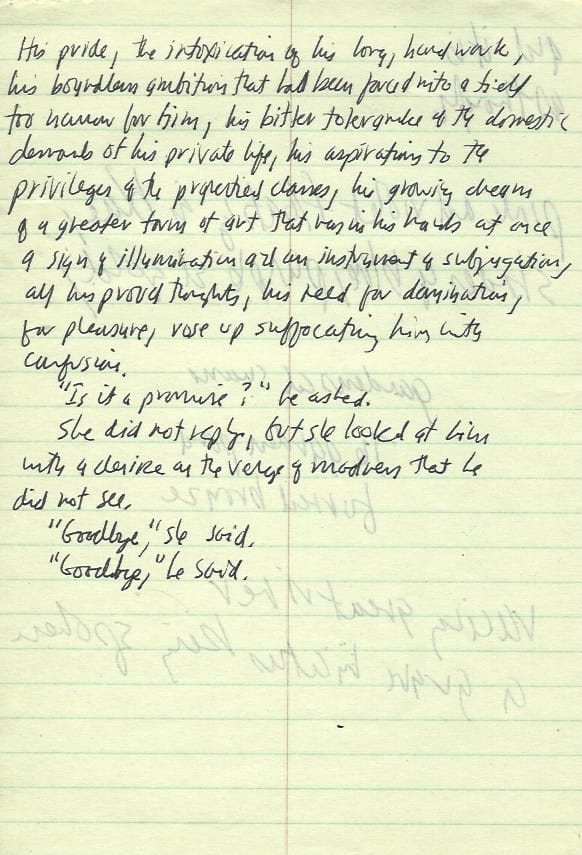 His pride, the intoxication of his long, hard work,
his boundless ambition that had been forced into a field
too narrow for him, his bitter tolerance of the domestic
demands of his private life, his aspiration to the
privileges of the propertied classes, his growing dream
of a greater form of art that was in his hands at once
a sign of illumination and an instrument of subjugation,
all his proud thoughts, his need for domination,
for pleasure, rose up suffocating him with
confusion.
"Is it a promise?" he asked.
She did not reply, but she looked at him
with a desire on the verge of madness that he
did not see.
"Goodbye," she said.
"Goodbye," he said.